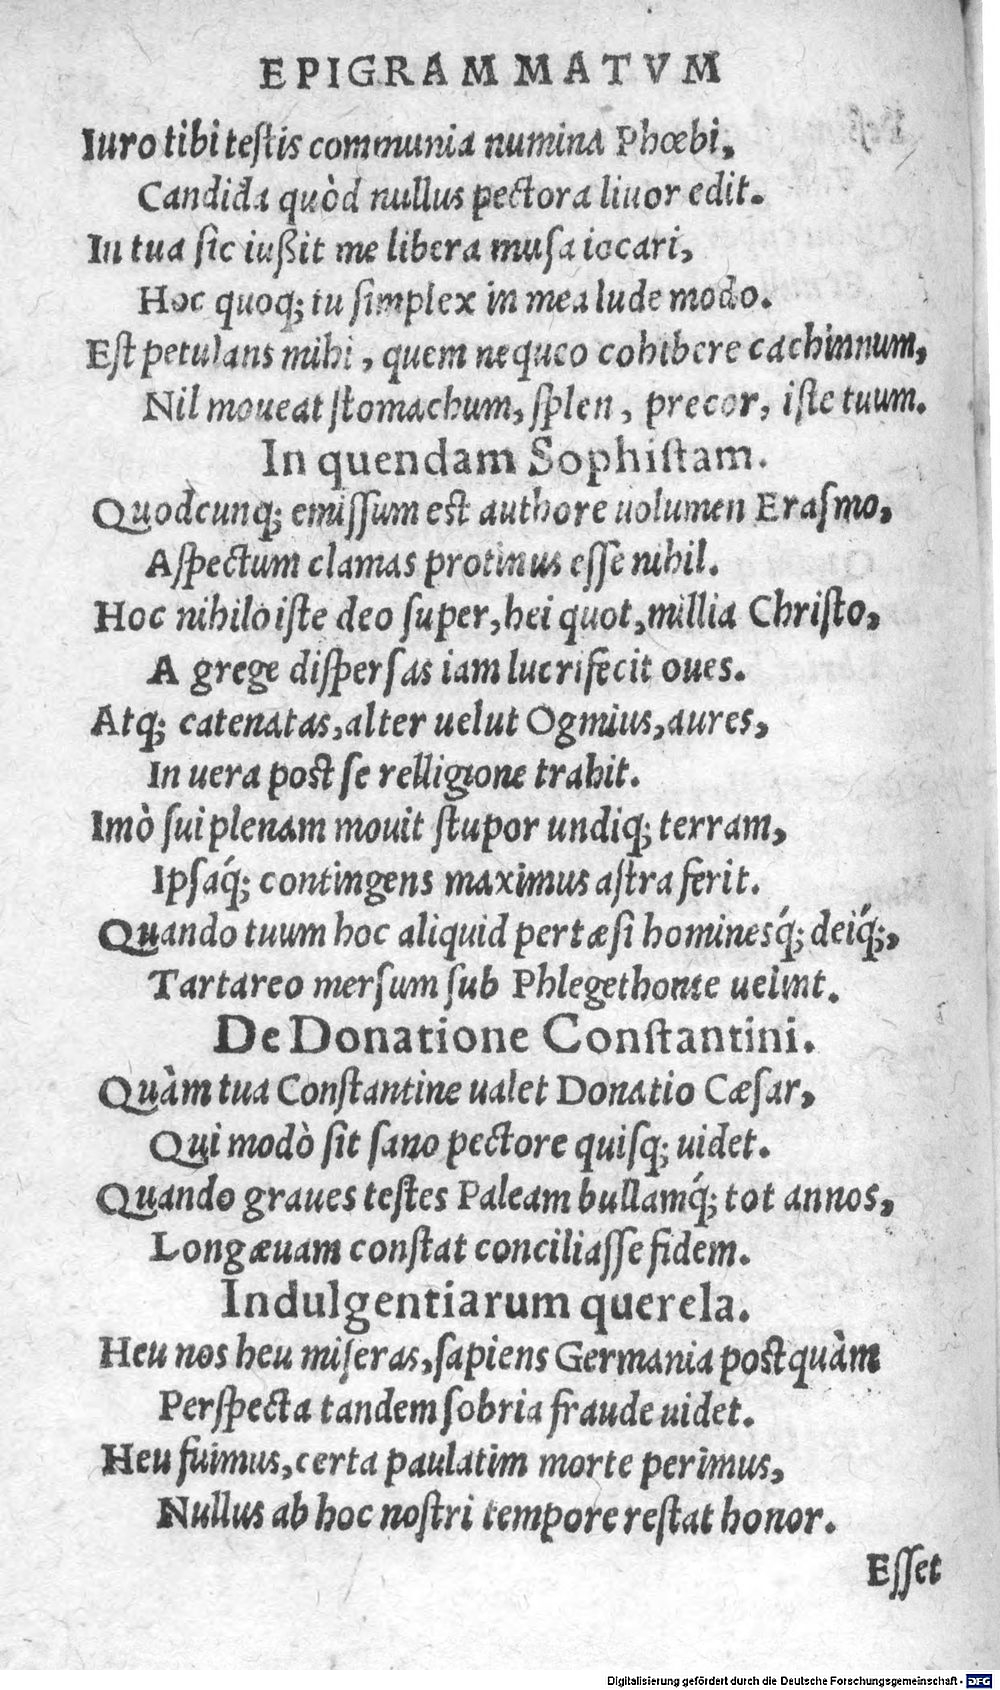 EPIGRAMMATVM
Iuro tibi testis communia numina Phœbi,
Candida quòd nullus pectora liuor edit.
In tua sic iußit me libera musa iocari,
Hoc quoq; tu simplex in mea lude modo.
Est petulans mihi, quem nequeo cohibere cachinnum,
Nil moueat stomachum, splen, precor, iste tuum.
In quendam Sophistam.
Quodcunq; emissum est authore uolumen Erasmo,
Aspectum clamas protinus esse nihil.
Hoc nihilo iste deo super, hei quot, millia Christo,
A grege dispersas iam lucrifecit oues.
Atq; catenatas, alter uelut Ogmius, aures,
In uera post se relligione trahit.
Imò sui plenam mouit stupor undiq; terram,
Ipsáq; contingens maximus astra ferit.
Quando tuum hoc aliquid pertæsi hominesq́; deiq́;,
Tartareo mersum sub Phlegethonte uelint.
De Donatione Constantini.
Quàm tua Constantine ualet Donatio Cæsar,
Qui modò sit sano pectore quisq; uidet.
Quando graues testes Paleam bullamq́; tot annos,
Longæuam constat conciliasse fidem.
Indulgentiarum querela.
Heu nos heu miseras, sapiens Germania postquàm
Perspecta tandem sobria fraude uidet.
Heu fuimus, certa paulatim morte perimus,
Nullus ab hoc nostri tempore restat honor.
Esset
Digitalisierung gefördert durch die Deutsche Forschungsgemeinschaft - DFG